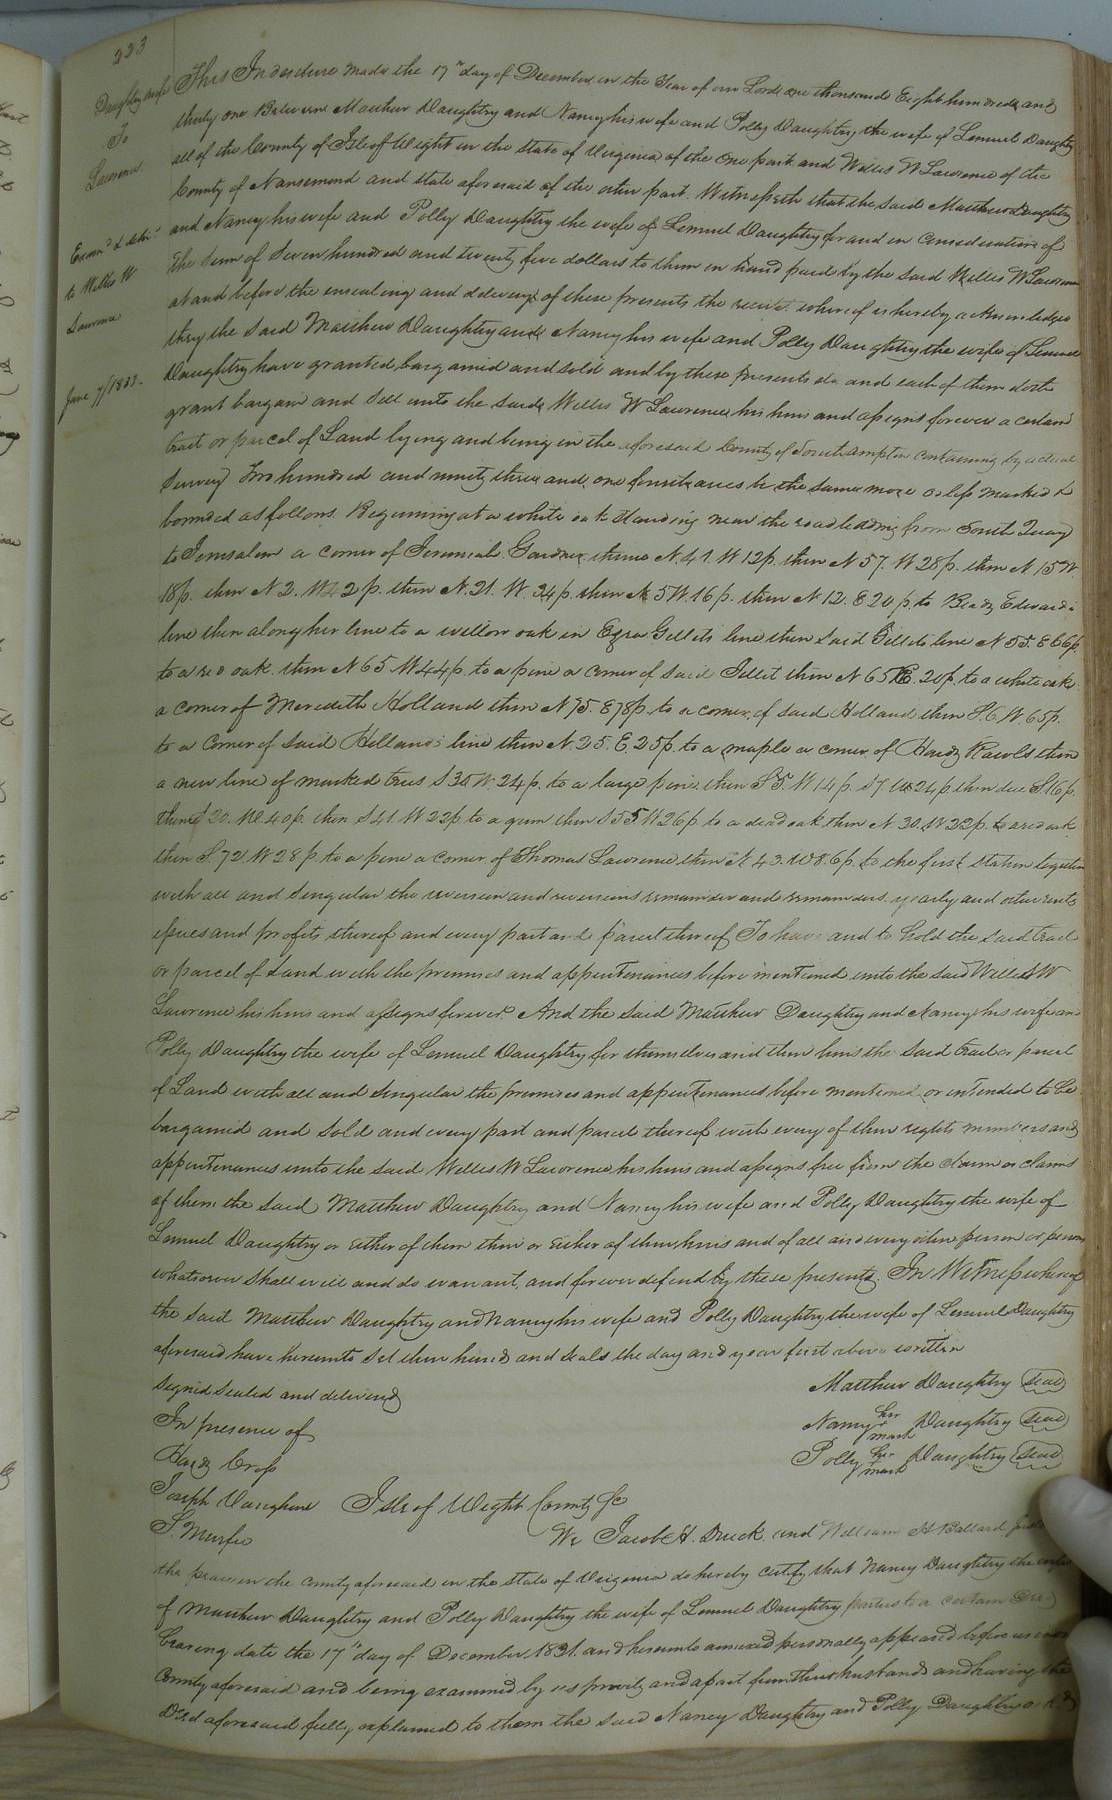 223
Daughtry & wife
To
Lawrence
Exam.d & deli.d
to Willis W
Lawrence
June 7/1833.
This Indenture made the 17th day of December in the Year of our Lord one thousand Eight hundred and
thirty one Between Matthew Daughtry and Nancy his wife and Polly Daughtry the wife of Lemuel Daughtry
all of the County of Isle of Wight in the State of Virginia of the one part and Willis W Lawrence of the
County of Nansemond and state aforesaid of the other part. Witnesseth that the said Matthew Daughtry
and Nancy his wife and Polly Daughtry the wife of Lemuel Daughtry for and in Consideration of
the sum of Seven hundred and twenty five dollars to them in hand paid by the said Willis W Lawrence
at and before the ensealing and delivery of these presents the receipt whereof is hereby acknowledged
they the said Matthew Daughtry and Nancy his wife and Polly Daughtry the wife of Lemuel
Daughtry have granted bargained and sold and by these presents do and each of them doth
grant bargain and sell unto the said Willis W Lawrence his heirs and assigns forever a certain
tract or parcel of Land lying and being in the aforesaid County of Southampton containing by actual
Survey Two hundred and ninety three and one fourth acres be the same more or less marked &
bounded as follows. Beginning at a white oak standing near the road leading from South Quay
to Jerusalem a corner of Jeremiah Gardner thence N.41. W 12p. then N 57. W 28p. then N 15 W.
18p. then N 2. W 42p. then N. 21. W. 34p. then N 5 W. 16p. then N 12. E 20p. to Edwards
line then along her line to a willow oak in Ezra Gillets line then said Gillets line N 55. E 66p.
to a red oak. then N 65 W 44p. to a pine a corner of said Gillet then N 65 E. 20p. to a white oak
a corner of Meredith Holland then N 75. E 78p. to a corner of said Holland then S. 6. W. 65p.
to a corner of said Hollands line then N. 25. E. 25p. to a maple a corner of Hardy Rawls then
a new line of marked trees S 30 W 24p. to a large pine. then S 5. W 14p. S 7 W 24p then due S. 16p.
thence S 20. W. 40p. then S 41. W 22p. to a gum then S 55 W 26p. to a dead oak then N. 30. W 22p. to a red oak
then S 72 W 28p. to a pine a corner of Thomas Lawrence then N 43. W 86p. to the first station together
with all and singular the reversion and reversions remainder and remainders yearly and other rents
issues and profits thereof and every part and parcel thereof To have and to hold the said tract
or parcel of Land with the premises and appurtenances before mentioned unto the said Willis W
Lawrence his heirs and assigns forever. And the said Matthew Daughtry and Nancy his wife and
Polly Daughtry the wife of Lemuel Daughtry for themselves and their heirs the said tract or parcel
of Land with all and singular the premises and appurtenances before mentioned or intended to be
bargained and sold and every part and parcel thereof with every of their rights members and
appurtenances unto the said Willis W Lawrence his heirs and assigns free from the claim or claims
of them the said Matthew Daughtry and Nancy his wife and Polly Daughtry the wife of
Lemuel Daughtry or either of them their or either of their heirs and of all and every other person or persons
whatsoever shall will and do warrant, and forever defend by these presents. In Witness whereof
the said Matthew Daughtry and Nancy his wife and Polly Daughtry the wife of Lemuel Daughtry
aforesaid have hereunto set their hands and seals the day and year first above written
Signed sealed and delivered
In presence of
Hardy Cross
Joseph Vaughan
S. Murfee
Matthew Daughtry Seal
Nancy her mark Daughtry Seal
Polly her mark Daughtry Seal
Isle of Wight County Sc
We Jacob H. Duck and William H Ballard Justices
the peace in the county aforesaid in the state of Virginia do hereby certify that Nancy Daughtry the wife
of Matthew Daughtry and Polly Daughtry the wife of Lemuel Daughtry parties to a certain Deed
bearing date the 17th day of December 1831. and hereunto annexed personally appeared before us in our
County aforesaid and being examined by us privily and apart from their husbands and having the
Deed aforesaid fully explained to them the said Nancy Daughtry and Polly Daughtry